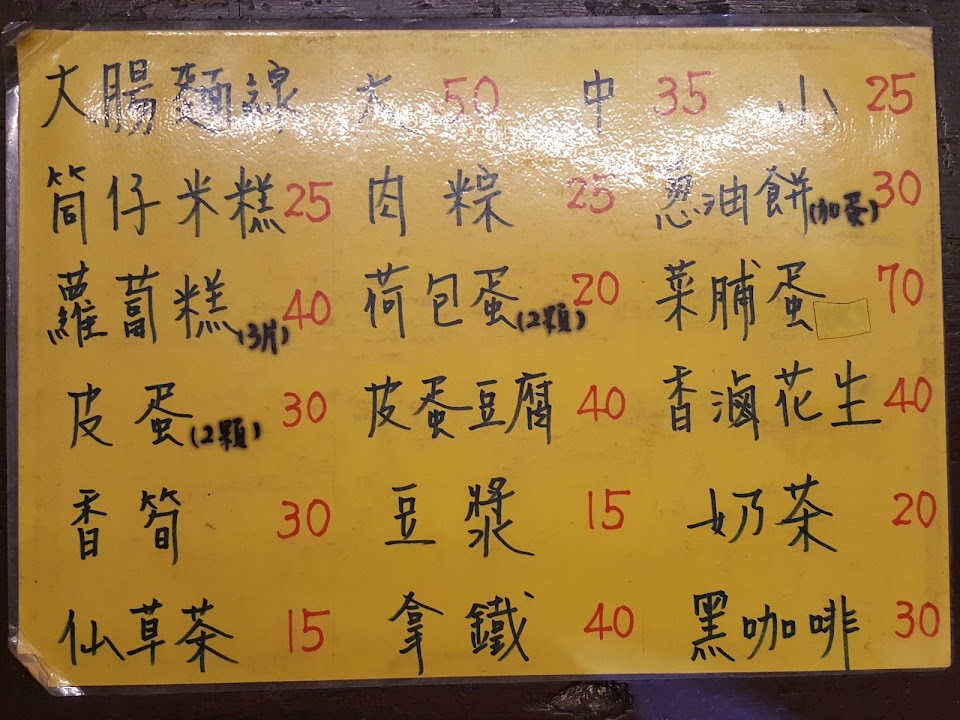 大腸麵線 大 50 中 35 小 25
筒仔米糕 25 肉粽 25 蔥油餅(加蛋) 30
蘿蔔糕(3片) 40 荷包蛋(2顆) 20 菜脯蛋 70
皮蛋(2顆) 30 皮蛋豆腐 40 香滷花生 40
香筍 30 豆漿 15 奶茶 20
仙草茶 15 拿鐵 40 黑咖啡 30